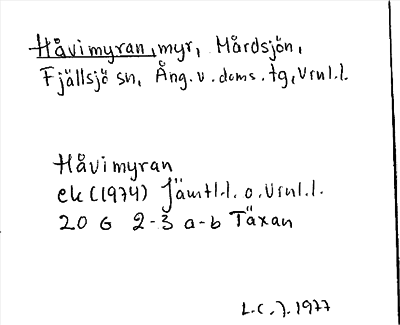 Håvimyran, myr, Mårdsjön,
Fjällsjö sn, Ång. v. doms. tg, Vrnl.l.
Håvimyran
ek (1974) Jämtl.l. o. Vrnl.l.
20 G 2-3 a-b Täxan
L.C.J. 1977